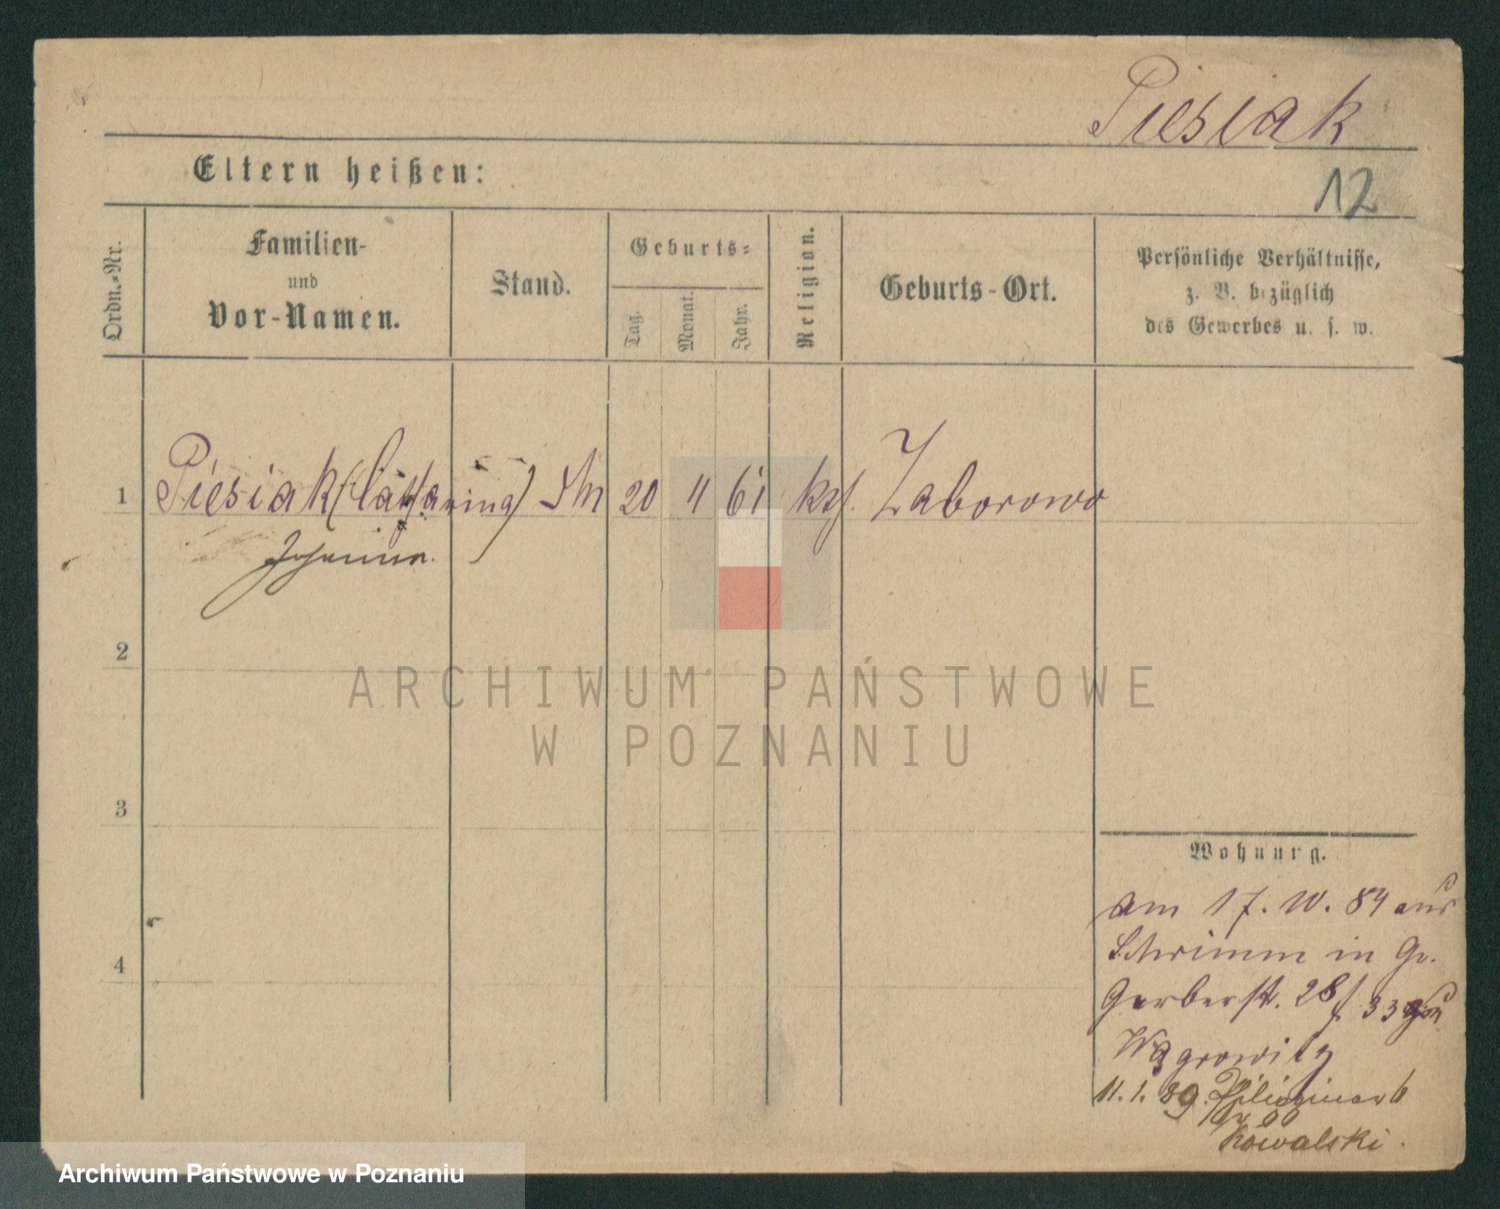 Piesiak
Eltern heißen:
12
Ordn.-Nr.
Familien-
und
Vor-Namen.
Stand.
Geburts-
Tag.
Monat.
Jahr.
Religion.
Geburts-Ort.
Persönliche Verhältnisse,
z. B. bezüglich
des Gewerbes u. s. w.
1 Piesiak (Catharina) 20 11 61 kth. Zaborowo
Johanna.
2
ARCHIWUM PAŃSTWOWE
W POZNANIU
3
Wohnung.
am 17. 10. 84 aus
Schrimm in Gr.
Gerberst. 28 f. 33
Wagrowitz
4
11. 1. 89.
Kowalski.
Archiwum Państwowe w Poznaniu